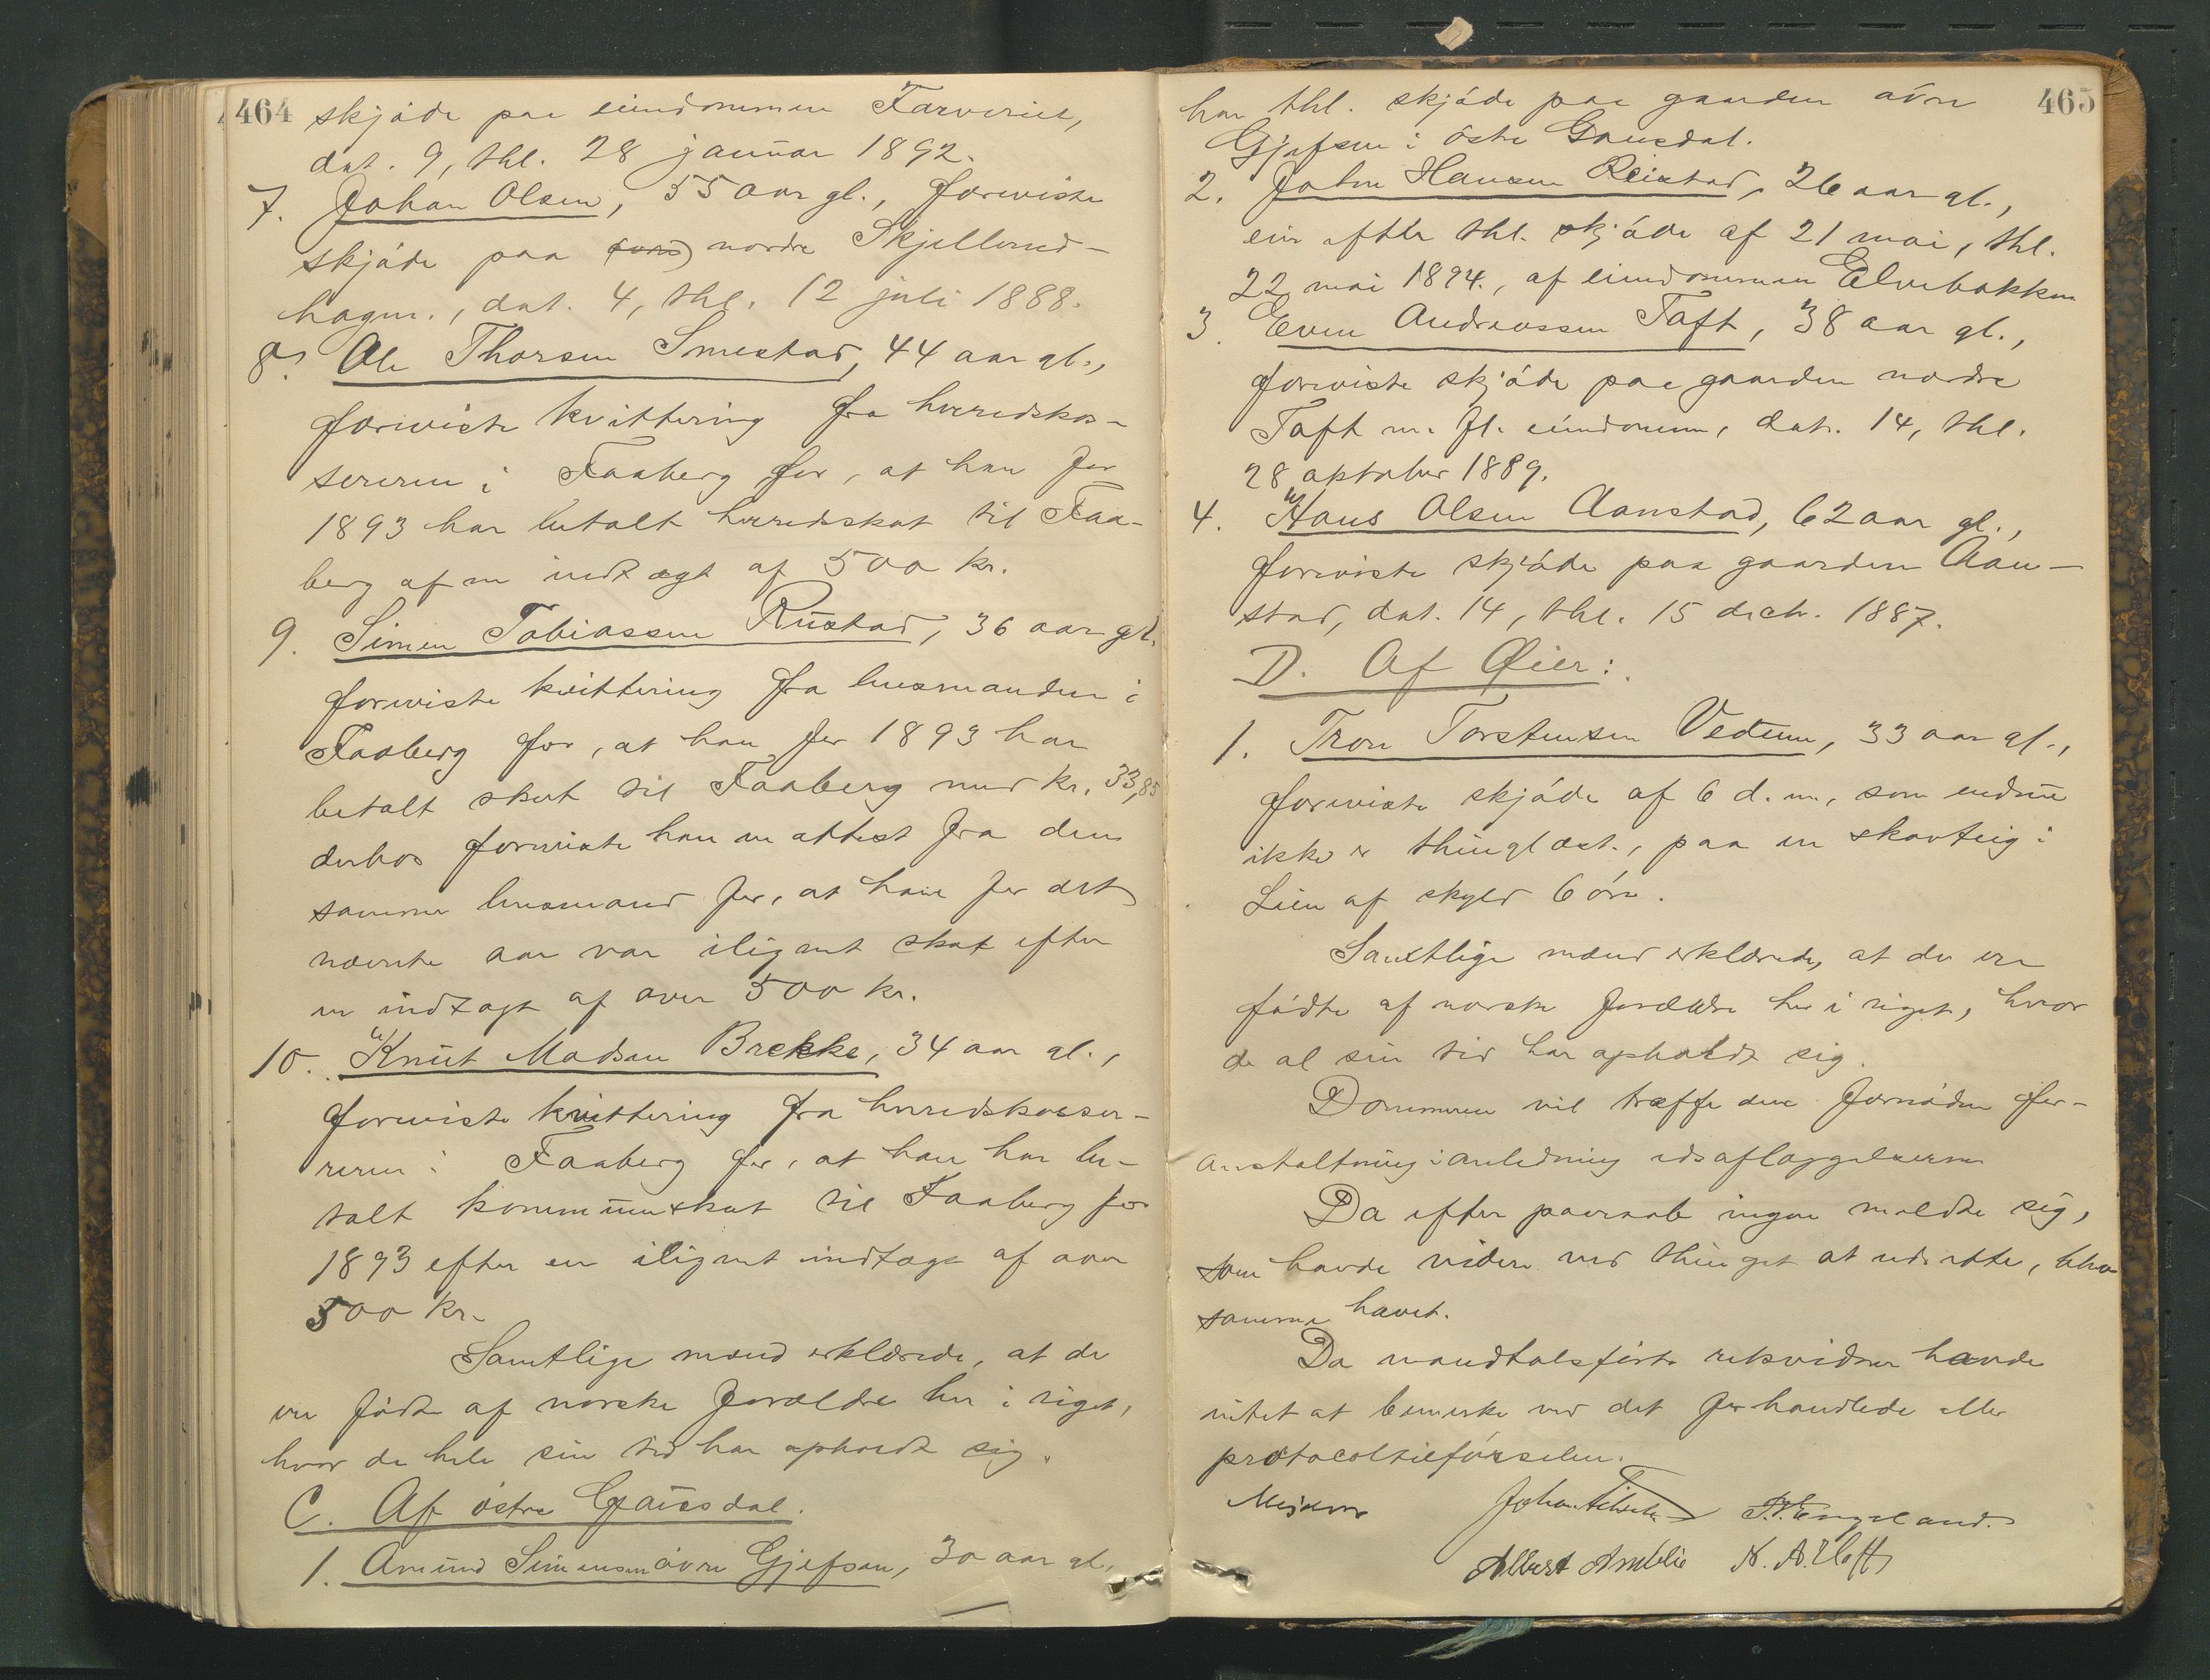 464
skjöde paa eiendommen Farveriet,
dat. 9, thl. 28 januar 1892.
7. Johan Olsen, 55 aar gl., foreviste
skjöde paa nordre Skjellerud-
hagen., dat. 4, thl. 12 juli 1888.
8. Ole Thorsen Smestad, 44 aar gl.,
foreviste kvittering fra herredskas-
sereren i Faaberg for, at han for
1893 har betalt herredsskat til Faa-
berg af en indtægt af 500 kr.
9. Simen Tobiassen Rustad, 36 aar gl.
foreviste kvittering fra lensmanden i
Faaberg for, at han for 1893 har
betalt skat til Faaberg med kr. 33,85
derhos foreviste han en attest fra den
samme lensmand for, at han for det
nævnte aar var ilignet skat efter
en indtægt af over 500 kr.
10. Knut Madsen Brekke, 34 aar gl.,
foreviste kvittering fra herredskasse-
reren i Faaberg for, at han har be-
talt kommuneskat til Faaberg for
1893 efter en ilignet indtægt af over
500 kr.
Samtlige mænd erklærede, at de
ere födte af norske forældre her i riget,
hvor de hele sin tid har opholdt sig.
C. Af östre Gausdal.
1. Amund Simensen övre Gjefsen, 30 aar gl.,
465
har thl. skjöde paa gaarden övre
Gjefsen i östre Gausdal.
2. Johan Hansen Reistad, 26 aar gl.,
eier efter thl. skjöde af 21 mai, thl.
22 mai 1894., af eiendommen Elvebakken
3. Even Andreassen Toft, 38 aar gl.,
foreviste skjöde paa gaarden nordre
Toft m. fl. eiendomme, dat. 14, thl.
28 oktober 1889.
4. Hans Olsen Aanstad, 62 aar gl.,
foreviste skjöde paa gaarden Aan-
stad, dat. 14, thl. 15 decbr. 1887.
D. Af Øier:
1. Tron Torstensen Vedum, 33 aar gl.,
foreviste skjöde af 6 d. m., som endnu
ikke er thinglæst., paa en skovteig i
Lien af skyld 6 öre.
Samtlige mænd erklærede, at de ere
födte af norske forældre her i riget, hvor
de al sin tid har opholdt sig.
Dommeren vil træffe den fornödne for-
anstaltning i anledning edsaflæggelserne
Da efter paaraab ingen meldte sig,
som havde videre ved thinget at udrette, blev
samme hævet.
Da mandtalsförte retsvidner havde
intet at bemerke ved det forhandlede eller
protocoltilförselen.
Mejdell Johan P. Engeland.
Albert Amblie